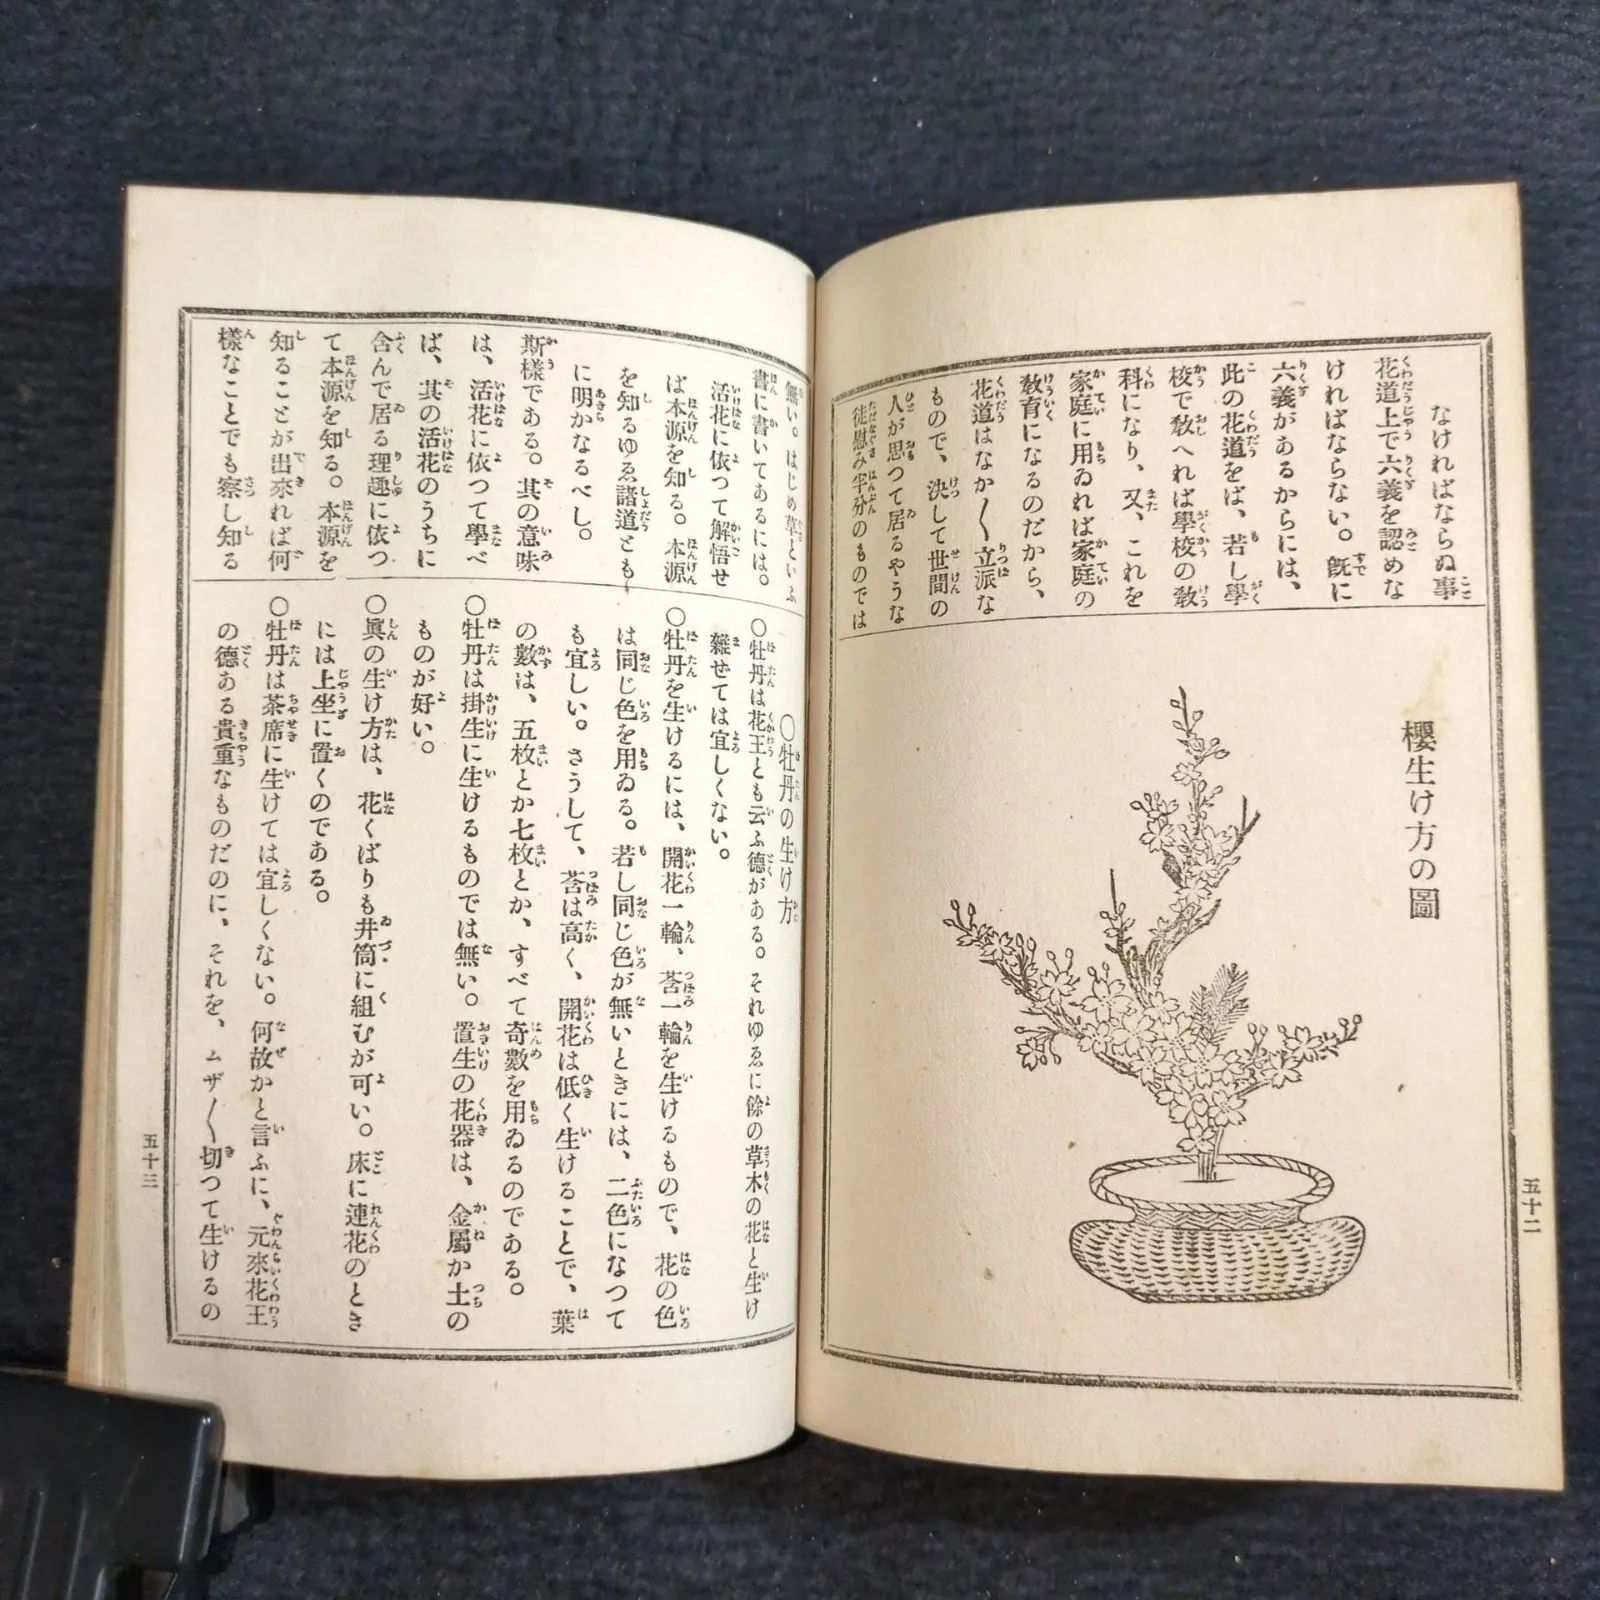 なければならぬ事
花道上で六義を認めな
ければならない。既に
六義があるからには、
此の花道をば、若し學
校で敎へれば學校の敎
科になり、又、これを
家庭に用ゐれば家庭の
敎育になるのだから、
花道はなか〱立派な
もので、決して世間の
人が思つて居るやうな
徒慰み半分のものでは
櫻生け方の圖
五十二
無い。はじめ草といふ
書に書いてあるには。
活花に依つて解悟せ
ば本源を知る。本源
を知るゆゑ諸道とも
に明かなるべし。
斯樣である。其の意味
は、活花に依つて學べ
ば、其の活花のうちに
含んで居る理趣に依つ
て本源を知る。本源を
知ることが出來れば何
樣なことでも察し知る
〇牡丹の生け方
〇牡丹は花王とも云ふ德がある。それゆゑに餘の草木の花と生け
雜せては宜しくない。
〇牡丹を生けるには、開花一輪、莟一輪を生けるもので、花の色
は同じ色を用ゐる。若し同じ色が無いときには、二色になつて
も宜しい。さうして、莟は高く、開花は低く生けることで、葉
の數は、五枚とか七枚とか、すべて奇數を用ゐるのである。
〇牡丹は掛生に生けるものでは無い。置生の花器は、金屬か土の
ものが好い。
〇眞の生け方は、花くばりも井筒に組むが可い。床に連花のとき
には上坐に置くのである。
〇牡丹は茶席に生けては宜しくない。何故かと言ふに、元來花王
の德ある貴重なものだのに、それを、ムザ〱切つて生けるの
五十三